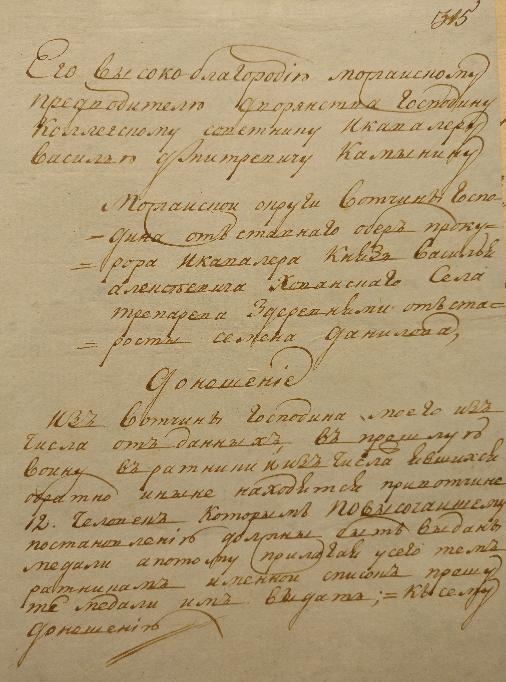 315
Его высокоблагородию Мологскому
предводителю дворянства господину
коллежскому советнику и кавалеру
Василью Дмитревичу Камынину
Мологской округи вотчины госпо-
дина отъ ставнаго оберъ проку-
рора и кавалера Князь Василья
Алексеевича Хованскаго села
здеревнями отъ ста-
росты семена данилова,
Доношение
Изъ вотчины господина моего изъ
числа отъ данныхъ въ прошлую
воину въ ратники и изъ числа явившихся
обратно и ныне находится при вотчине
12. человекъ которымъ по высочаишему
постановлению должны быть выданъ
медали а потому прилагая у сего темъ
ратникамъ именной списокъ прошу
те медали имъ выдать; = къ сему
доношению